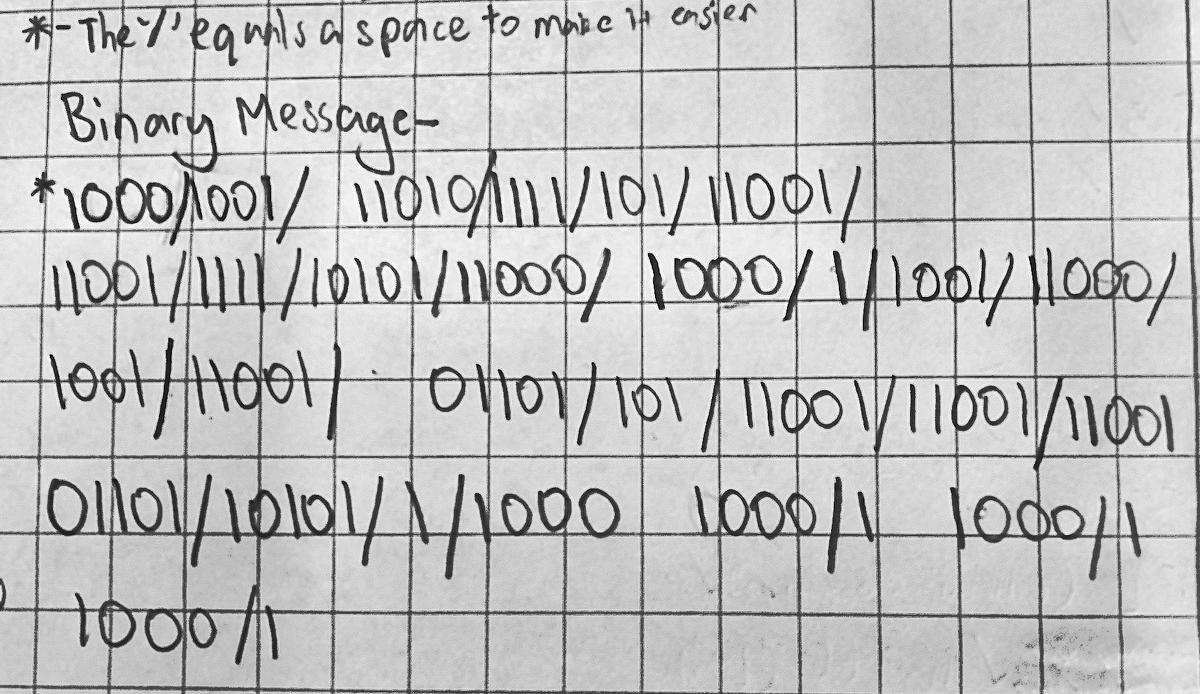 *-The '/' equals a space to make it easier
Binary Message-
*1000/1001/ 11010/1111/101/11001/
11001/1111/10101/11000/ 1000/1/1001/11000/
1001/11001/ 01101/101/11001/11001/11001
01101/10101/1/1000 1000/1 1000/1
1000/1